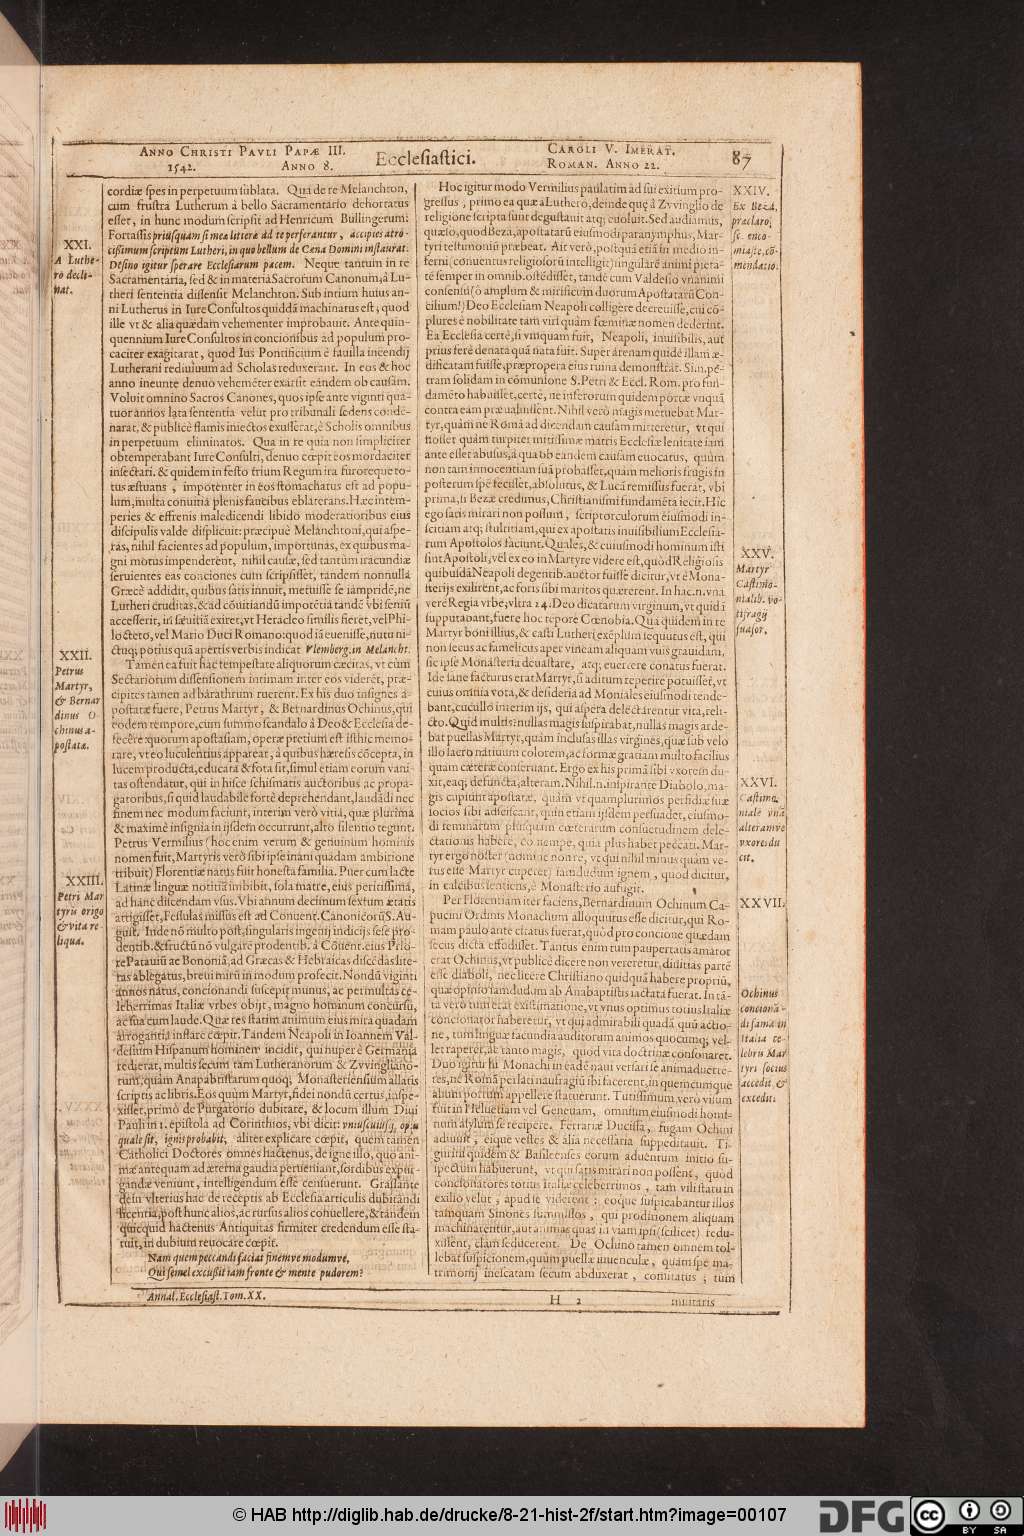 ANNO CHRISTI PAVLI PAPÆ III. Ecclesiastici. CAROLI V. IMERAT. 87
1542. ANNO 8. ROMAN. ANNO 22.
cordiæ spes in perpetuum sublata. Qua de re Melanchton,
cum frustra Lutherum à bello Sacramentario dehortatus
esset, in hunc modum scripsit ad Henricum Bullingerum:
Fortassis priusquam si meæ litteræ ad te perferantur, accipies atro-
cissimum scriptum Lutheri, in quo bellum de Cœna Domini instaurat.
Desino igitur sperare Ecclesiarum pacem. Neque tantum in re
Sacramentaria, sed & in materia Sacrorum Canonum, à Lu-
theri sententia dissensit Melanchton. Sub initium huius an-
ni Lutherus in Iure Consultos quiddā machinatus est, quod
ille vt & alia quædam vehementer improbauit. Ante quin-
quennium Iure Consultos in concionibus ad populum pro-
caciter exagitarat, quod Ius Pontificium è fauilla incendij
Lutherani rediuiuum ad Scholas reduxerant. In eos & hoc
anno ineunte denuò vehemēter exarsit eandem ob causam.
Voluit omnino Sacros Canones, quos ipse ante viginti qua-
tuor annos lata sententia velut pro tribunali sedens condē-
narat, & publicè flāmis iniectos exusserat, è Scholis omnibus
in perpetuum eliminatos. Qua in re quia non simpliciter
obtemperabant Iure Consulti, denuo cœpit eos mordaciter
insectari. & quidem in festo trium Regum ira furoreque to-
tus æstuans, impotenter in eos stomachatus est ad popu-
lum, multa conuitia plenis faucibus eblaterans. Hæc intem-
peries & effrenis maledicendi libido moderatioribus eius
discipulis valde displicuit: præcipuè Melanchtoni, qui aspe-
ras, nihil facientes ad populum, importunas, ex quibus ma-
gni motus impenderent, nihil causæ, sed tantùm iracundiæ
seruientes eas conciones cum scripsisset, tandem nonnulla
Græcè addidit, quibus satis innuit, metuisse se iampridē, ne
Lutheri eruditas, & ad cōuitiandū impotētia tandē vbi seniū
accesserit, in sæuitiā exiret, vt Heracleo similis fieret, vel Phi-
locteto, vel Mario Duci Romano: quod iā euenisse, nutu ni-
ctuq; potius quā apertis verbis indicat Vlemberg. in Melancht.
Tamen ea fuit hac tempestate aliquorum cæcitas, vt cùm
Sectariorum dissensionem intimam inter eos viderēt, præ-
cipites tamen ad bárathrum ruerent. Ex his duo insignes a-
postatæ fuere, Petrus Martyr, & Bernardinus Ochinus, qui
eodem tempore, cum summo scandalo à Deo & Ecclesia de-
fecêre: quorum apostasiam, operæ pretium est isthic memo-
rare, vt eo luculentius appareat, à quibus hæresis cōcepta, in
lucem producta, educata & fota sit, simul etiam eorum vani-
tas ostendatur, qui in hisce schismatis auctoribus ac propa-
gatoribus, si quid laudabile fortè deprehendant, laudādi nec
finem nec modum faciunt, interim verò vitia, quæ plurima
& maximè insignia in ijsdem occurrunt, alto silentio tegunt.
Petrus Vermilius (hoc enim verum & genuinum hominis
nomen fuit, Martyris verò sibi ipse inani quadam ambitione
tribuit) Florentiæ natus fuit honesta familia. Puer cum lacte
Latinæ linguæ notitiā imbibit, sola matre, eius peritissima,
ad hanc discendam vsus. Vbi annum decimum sextum ætatis
attigisset, Fesulas missus est ad Conuent. Canonicorū S. Au-
gust. Inde nō multo post, singularis ingenij indicijs sese pro-
dentib. & fructū nō vulgarē prodentib. à Cōuent. eius Prio-
re Patauiū ac Bononiā, ad Græcas & Hebraicas discēdas lite-
ras ablegatus, breui mirū in modum profecit. Nondū viginti
annos natus, concionandi suscepit munus, ac permultas ce-
leberrimas Italiæ vrbes obijt, magno hominum concursu,
ac sua cum laude. Quæ res statim animum eius mira quadam
arrogantia inflare cœpit. Tandem Neapoli in Ioannem Val-
desium Hispanum hominem incidit, qui nuper è Germania
redierat, multis secum tam Lutheranorum & Zvvingliano-
rum, quàm Anapabtistarum quoq; Monasteriensium allatis
scriptis ac libris. Eos quùm Martyr, fidei nondū certus, inspe-
xisset, primò de Purgatorio dubitare, & locum illum Diui
Pauli in 1. epistola ad Corinthios, vbi dicit: vniuscuiusq, opus
quale sit, ignis probabit, aliter explicare cœpit, quem tamen
Catholici Doctores omnes hactenus, de igne illo, quo ani-
mæ antequam ad æterna gaudia perueniant, sordibus expur-
gandæ veniunt, intelligendum esse censuerunt. Grassante
dein vlterius hac de receptis ab Ecclesia articulis dubitandi
licentia, post hunc alios, ac rursus alios conuellere, & tandem
quicquid hactenus Antiquitas firmiter credendum esse sta-
tuit, in dubium reuocare cœpit.
Nam quem peccandi faciat finemve modumve,
Qui semel excussit iam fronte & mente pudorem?
Annal. Ecclesiast. Tom. XX.
XXI.
A Luthe-
ro decli-
nat.
XXII.
Petrus
Martyr,
& Bernar
dinus O
chinus a-
postatæ.
XXIII.
Petri Mar
tyris origo
& vita re-
liqua.
Hoc igitur modo Vermilius paulatim ad sui exitium pro-
gressus, primo ea quæ à Luthero, deinde quę à Zvvinglio de
religione scripta sunt degustauit atq; euoluit. Sed audiamus,
quæso, quod Beza, apostatarū eiusmodi paranymphus, Mar-
tyri testimoniū præbeat. Ait verò, postquā etiā in medio in-
ferni (conuentus religiosorū intelligit) singularē animi pieta-
tē semper in omnib. ostēdisset, tandē cum Valdesio vnanimi
consensu (ô amplum & mirificum duorum Apostatarū Con-
cilium!) Deo Ecclesiam Neapoli colligere decreuisse, cui cō-
plures è nobilitate tam viri quàm fœminæ nomen dederint.
Ea Ecclesia certè, si vnquam fuit, Neapoli, inuisibilis, aut
prius ferè denata quā nata fuit. Super arenam quidē illam æ-
dificatam fuisse, præpropera eius ruina demonstrat. Si. n. pe-
tram solidam in cōmunione S. Petri & Eccl. Rom. pro fun-
damēto habuisset, certè, ne inferorum quidem portæ vnquā
contra eam præualuissent. Nihil verò magis metuebat Mar-
tyr, quàm ne Romā ad dicendam causam mitteretur, vt qui
nosset quàm turpiter mitissimæ matris Ecclesiæ lenitate iam
ante esset abusus, à qua ob eandem causam euocatus, quùm
non tam innocentiam suā probasset, quàm melioris frugis in
posterum spē fecisset, absolutus, & Lucā remissus fuerat, vbi
prima, si Bezæ credimus, Christianismi fundamēta iecit. Hîc
ego satis mirari non possum, scriptorculorum eiusmodi in-
scitiam atq; stultitiam, qui ex apostatis inuisibilium Ecclesia-
rum Apostolos faciunt. Quales, & cuiusmodi hominum isti
sint Apostoli, vel ex eo in Martyre videre est, quòd Religiosis
quibusdā Neapoli degentib. auctor fuisse dicitur, vt è Mona-
sterijs exilirent, ac foris sibi maritos quærerent. In hac. n. vna
verè Regia vrbe, vltra 24. Deo dicatarum virginum, vt quidā
supputabant, fuere hoc tēpore Cœnobia. Qua quidem in re
Martyr boni illius, & casti Lutheri exēplum sequutus est, qui
non secus ac famelicus aper vineam aliquam vuis grauidam,
sic ipse Monasteria deuastare, atq; euertere conatus fuerat.
Idē sanè facturus erat Martyr, si aditum reperire potuisset, vt
cuius omnia vota, & desideria ad Moniales eiusmodi tende-
bant, cucullo interim ijs, qui aspera delectarentur vita, reli-
cto. Quid multis? nullas magis suspirabat, nullas magis arde-
bat puellas Martyr, quàm inclusas illas virgines, quæ sub velo
illo sacro natiuum colorem, ac formæ gratiam multo facilius
quam cæteræ conseruant. Ergo ex his primā sibi vxorem du-
xit, eaq; defuncta, alteram. Nihil. n. inspirante Diabolo, ma-
gis cupiunt apostatæ, quàm vt quamplurimos perfidiæ suæ
socios sibi adsciscant, quin etiam ijsdem persuadēt, eiusmo-
di feminarum plusquam cæterarum consuetudinem dele-
ctationis habere, eo nempe, quia plus habet peccati. Mar-
tyr ergo noster (nomine non re, vt qui nihil minus quàm ve-
rus esse Martyr cuperet) iamdudum ignem, quod dicitur,
in calcibus sentiens, è Monasterio aufugit.
Per Florentiam iter faciens, Bernardinum Ochinum Ca-
pucini Ordinis Monachum alloquutus esse dicitur, qui Ro-
mam paulo ante citatus fuerat, quòd pro concione quædam
secus dicta effudisset. Tantus enim tum paupertatis amator
erat Ochinus, vt publicè dicere non vereretur, diuitias partē
esse diaboli, nec licere Christiano quidquā habere propriū,
quæ opinio iamdudum ab Anabaptistis iactata fuerat. In tā-
ta verò tum erat existimatione, vt vnus optimus totius Italiæ
concionator haberetur, vt qui admirabili quadā quū actio-
ne, tum linguæ facundia auditorum animos quocumq; vel-
let raperet, ac tanto magis, quod vita doctrinæ consonaret.
Duo igitur hi Monachi in eadē naui versari se animaduerte-
res, nè Romā perlati naufragiū ibi facerent, in quemcumque
alium portum appellere statuerunt. Tutissimum verò visum
fuit in Heluetiam vel Geneuam, omnium eiusmodi homi-
num asylum se recipere. Ferrariæ Ducissa, fugam Ochini
adiuuit, eique vestes & alia necessaria suppeditauit. Ti-
gurini quidem & Basileenses eorum aduentum initio su-
spectum habuerunt, vt qui satis mirari non possent, quod
concionatores totius Italiæ celeberrimos, tam vili statu in
exilio velut, apud se viderent: eoque suspicabantur illos
tamquam Sinones summissos, qui proditionem aliquam
machinarentur, aut animas quas in viam ipsi (scilicet) redu-
xissent, clam seducerent. De Ochino tamen omnem tol-
lebat suspicionem, quùm puellæ iuuenculæ, quàm spe ma-
trimonij inescatam secum abduxerat, comitatus; tum
H 2 militaris
XXIV.
Ex Beza,
præclaro,
sc. enco-
miaste, cō-
mendatio.
XXV.
Martyr
Castimo-
nialib. vo-
tifragij
suasor.
XXVI.
Castimo-
niale vnā
alteramve
vxorē du
cit.
XXVII.
Ochinus
conciona-
di fama in
Italia ce-
lebris Mar
tyri socius
accedit &
excedit.
© HAB http://diglib.hab.de/drucke/8-21-hist-2f/start.htm?image=00107
DFG
cc BY SA